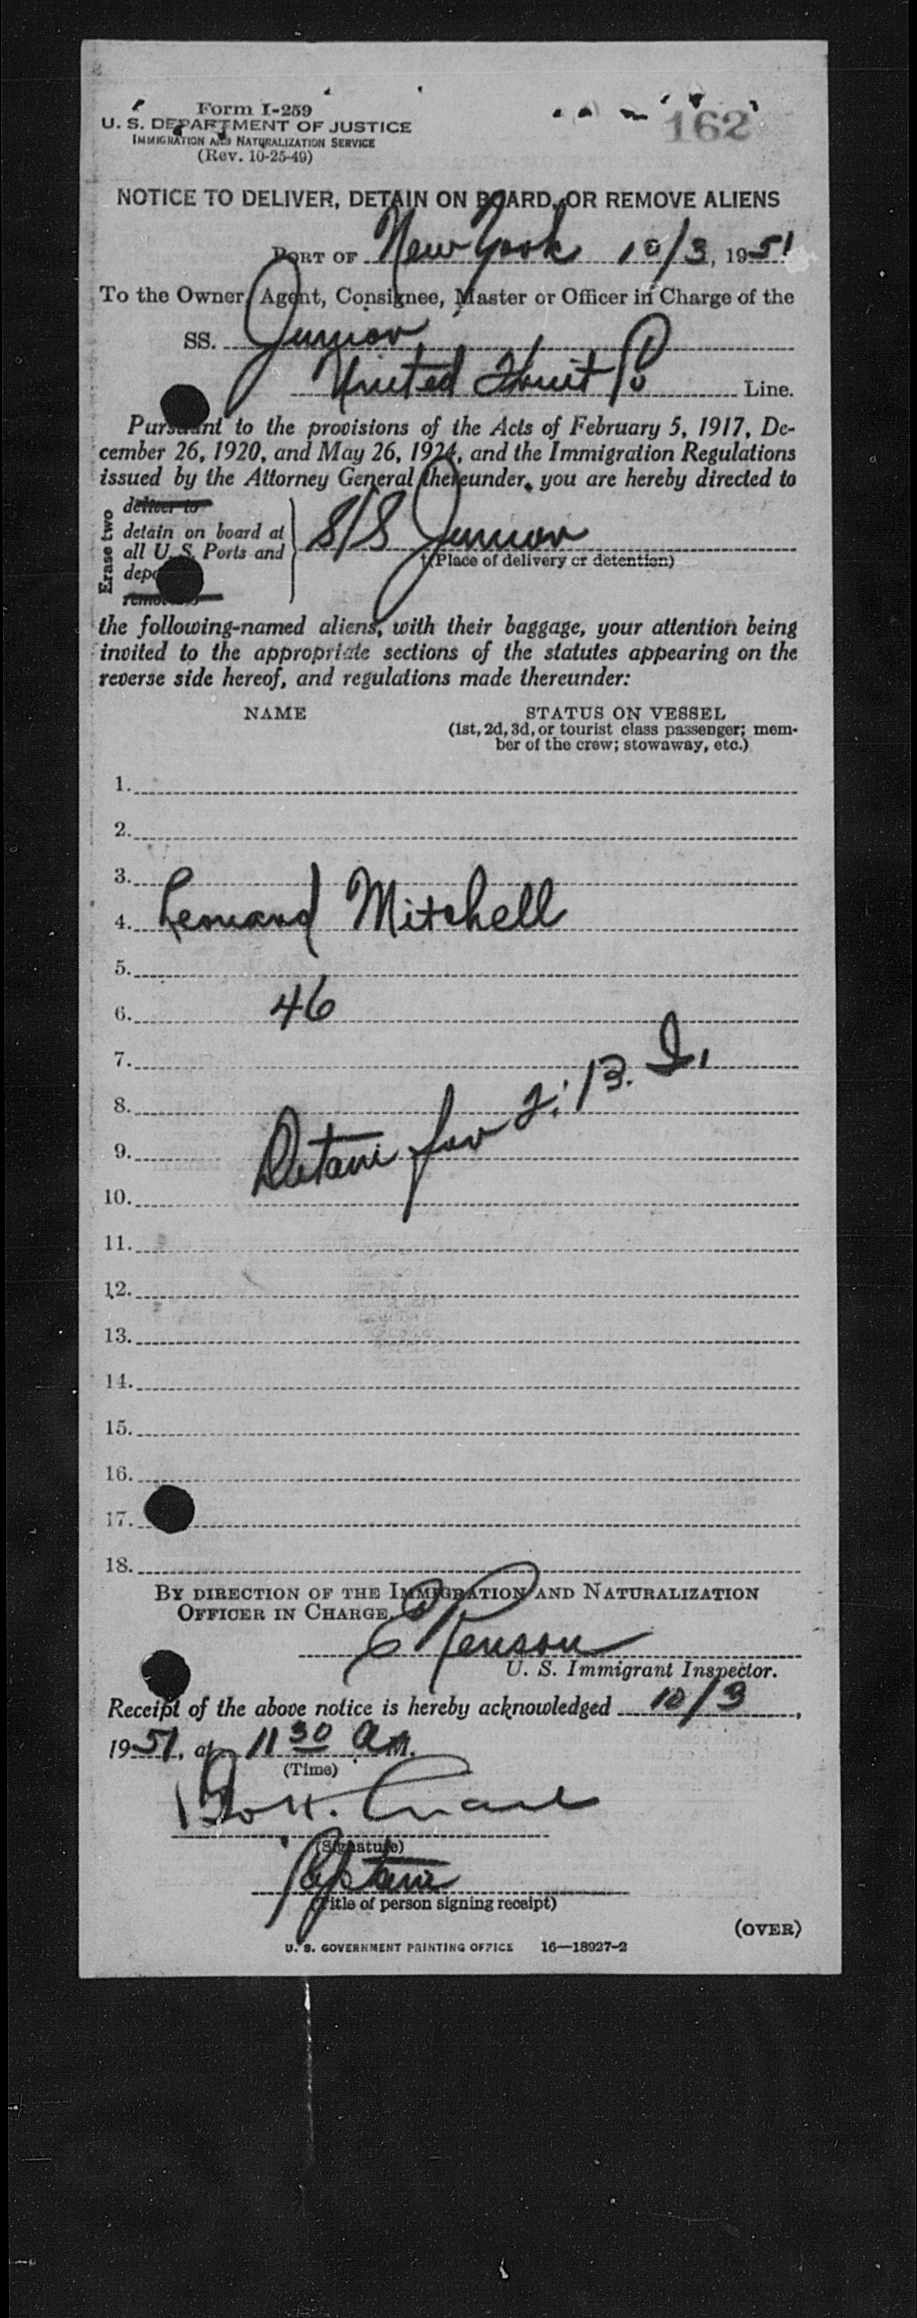 Form I-259
162
U. S. DEPARTMENT OF JUSTICE
IMMIGRATION AND NATURALIZATION SERVICE
(Rev. 10-25-49)
NOTICE TO DELIVER, DETAIN ON BOARD, OR REMOVE ALIENS
PORT OF New York 10/3, 1951
To the Owner, Agent, Consignee, Master or Officer in Charge of the
SS. Junior
United Fruit Co Line.
Pursuant to the provisions of the Acts of February 5, 1917, De-
cember 26, 1920, and May 26, 1924, and the Immigration Regulations
issued by the Attorney General thereunder, you are hereby directed to
Erase two
deliver to
detain on board at
all U. S. Ports and
S/S Junior
(Place of delivery or detention)
remove to
the following-named aliens, with their baggage, your attention being
invited to the appropriate sections of the statutes appearing on the
reverse side hereof, and regulations made thereunder:
NAME STATUS ON VESSEL
(1st, 2d, 3d, or tourist class passenger; mem-
ber of the crew; stowaway, etc.)
1.
2.
3.
4. Leonard Mitchell
5.
6. 46
7.
8.
9. Detain for F. B. I.
10.
11.
12.
13.
14.
15.
16.
17.
18.
BY DIRECTION OF THE IMMIGRATION AND NATURALIZATION
OFFICER IN CHARGE.
U. S. Immigrant Inspector.
Receipt of the above notice is hereby acknowledged 10/3,
1951, at 11 30 A M.
(Time)
(Signature)
Captain
(Title of person signing receipt)
(OVER)
U. S. GOVERNMENT PRINTING OFFICE 16—18927-2